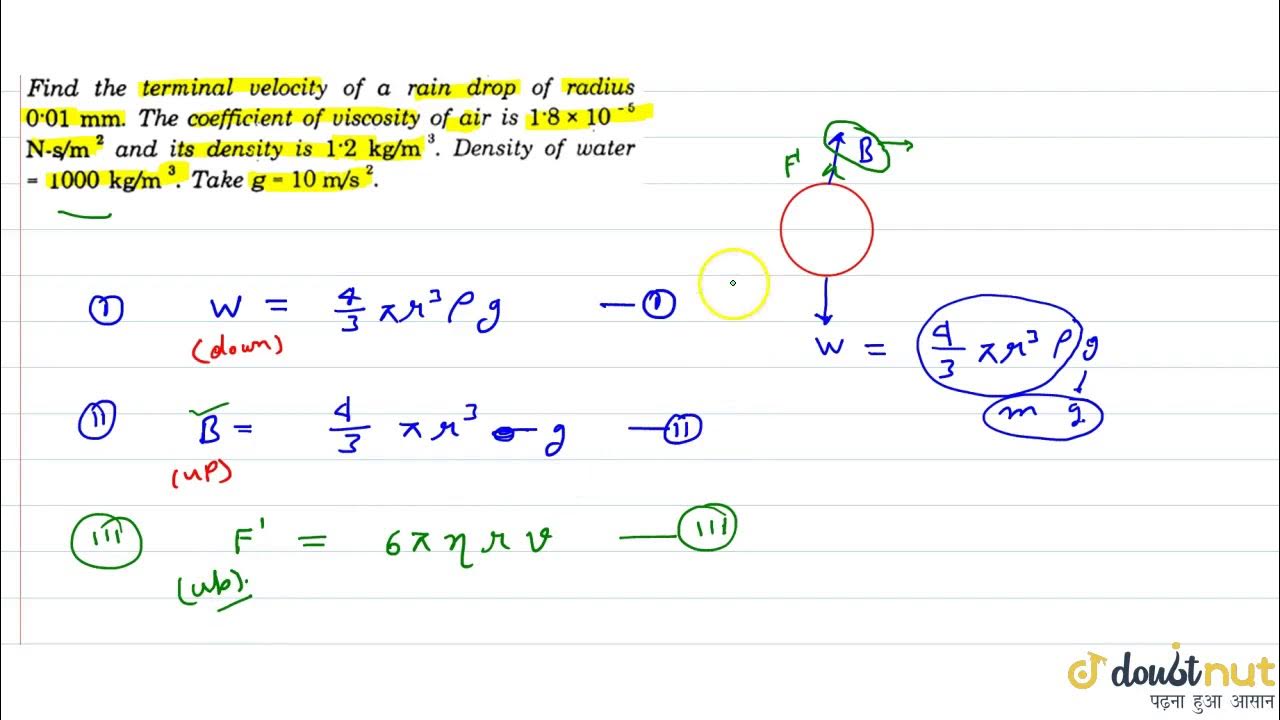 Find the terminal velocity of a rain drop of radius
0·01 mm. The coefficient of viscosity of air is 1·8 × 10⁻⁵
N-s/m² and its density is 1·2 kg/m³. Density of water
= 1000 kg/m³. Take g = 10 m/s².
F' B
① W = 4/3 πr³ρg — ①
(down)
W = 4/3 πr³ρg
m g
② B = 4/3 πr³ σ g — ②
(up)
③ F' = 6πηrv — ③
(up).
doubtnut
पढ़ना हुआ आसान